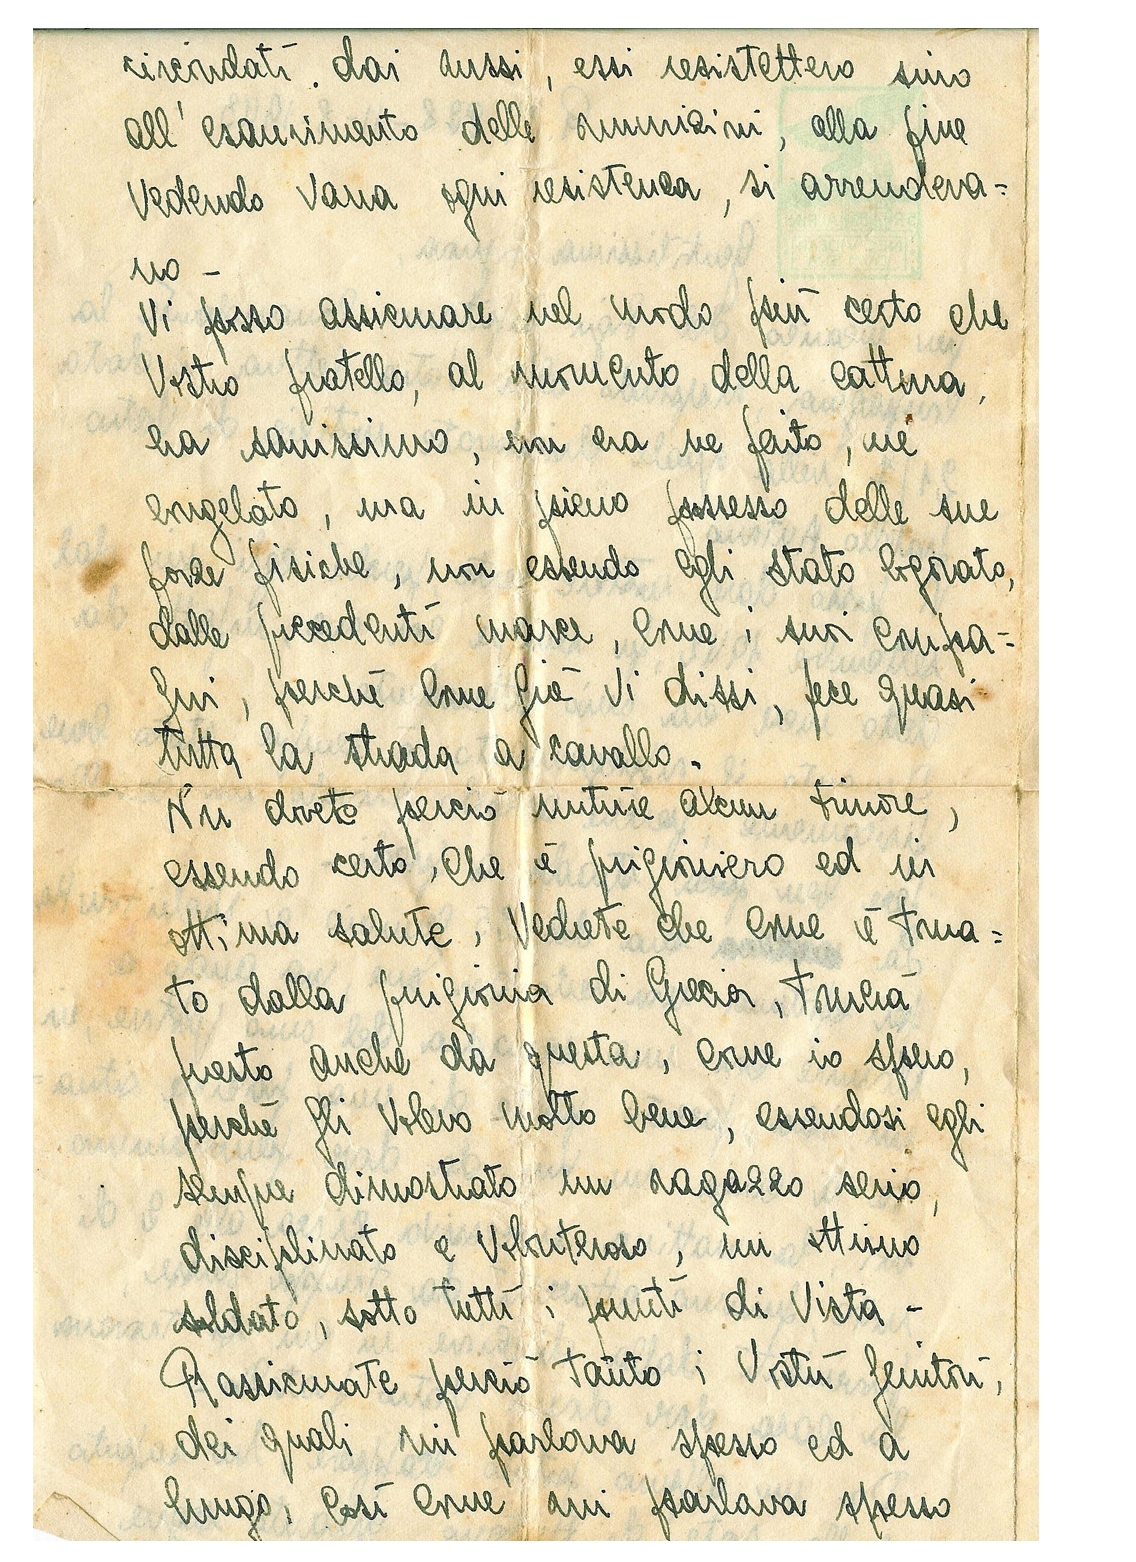 circondati. dai russi, essi resistettero sino
all'esaurimento delle munizini, alla fine
Vedendo Vana ogni resistenza, si arrendeva=
no -
Vi posso assicurare nel modo più certo che
Vostro fratello, al momento della cattura,
era sanissimo, non era ne ferito, ne
congelato, ma in pieno possesso delle sue
forze fisiche, non essendo egli stato logorato,
dalle precedenti marce, come i suoi compa=
gni, perchè come già Vi dissi, fece quasi
tutta la strada a cavallo.
Non dovete perciò nutrire alcun timore,
essendo certo, che è prigioniero ed in
ottima salute, Vedrete che come è torna=
to dalla prigionia di Grecia, tornerà
presto anche da questa, come io spero,
perchè gli Volevo molto bene, essendosi egli
sempre dimostrato un ragazzo serio,
disciplinato e Volonteroso, un ottimo
soldato, sotto tutti i punti di Vista -
Rassicurate perciò tanto i Vostri genitori,
dei quali mi parlava spesso ed a
lungo, così come mi parlava spesso